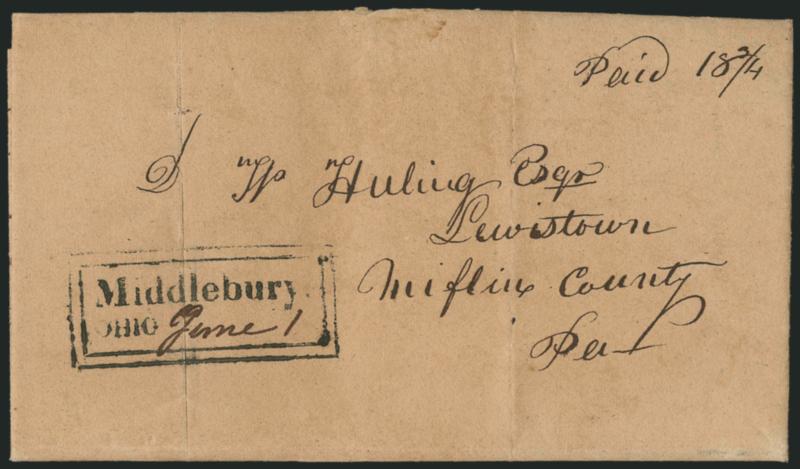 Paid 18 3/4
D W Huling Esqr
Lewistown
Miflin County
Pa
Middlebury
OHIO June 1